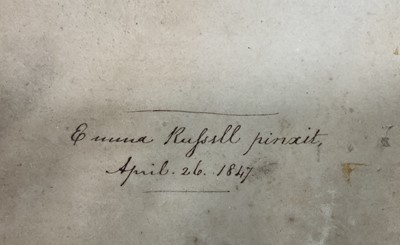 Emma Rufsell pinxit,
April. 26. 1847